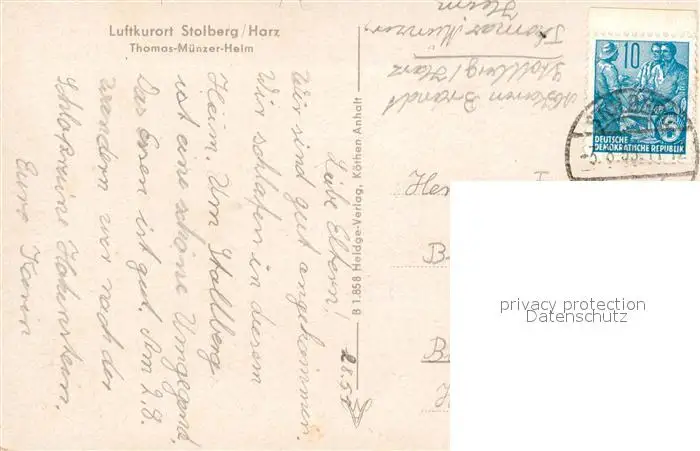 Luftkurort Stolberg/Harz
Thomas-Münzer-Heim
Liebe Eltern!
Wir sind gut angekommen.
Wir schlafen in diesem
Heim. Um Stollberg
ist eine schöne Umgegend,
Das Essen ist gut. Am 2.8.
wandern wir nach der
Schloßruine Hohnstein.
Eure Karin
2.8.57
B 1.858 Heldge-Verlag, Köthen Anhalt
Brandt
Stollberg/Harz
Thomas Münzer
Heim
10
DEUTSCHE
DEMOKRATISCHE REPUBLIK
privacy protection
Datenschutz